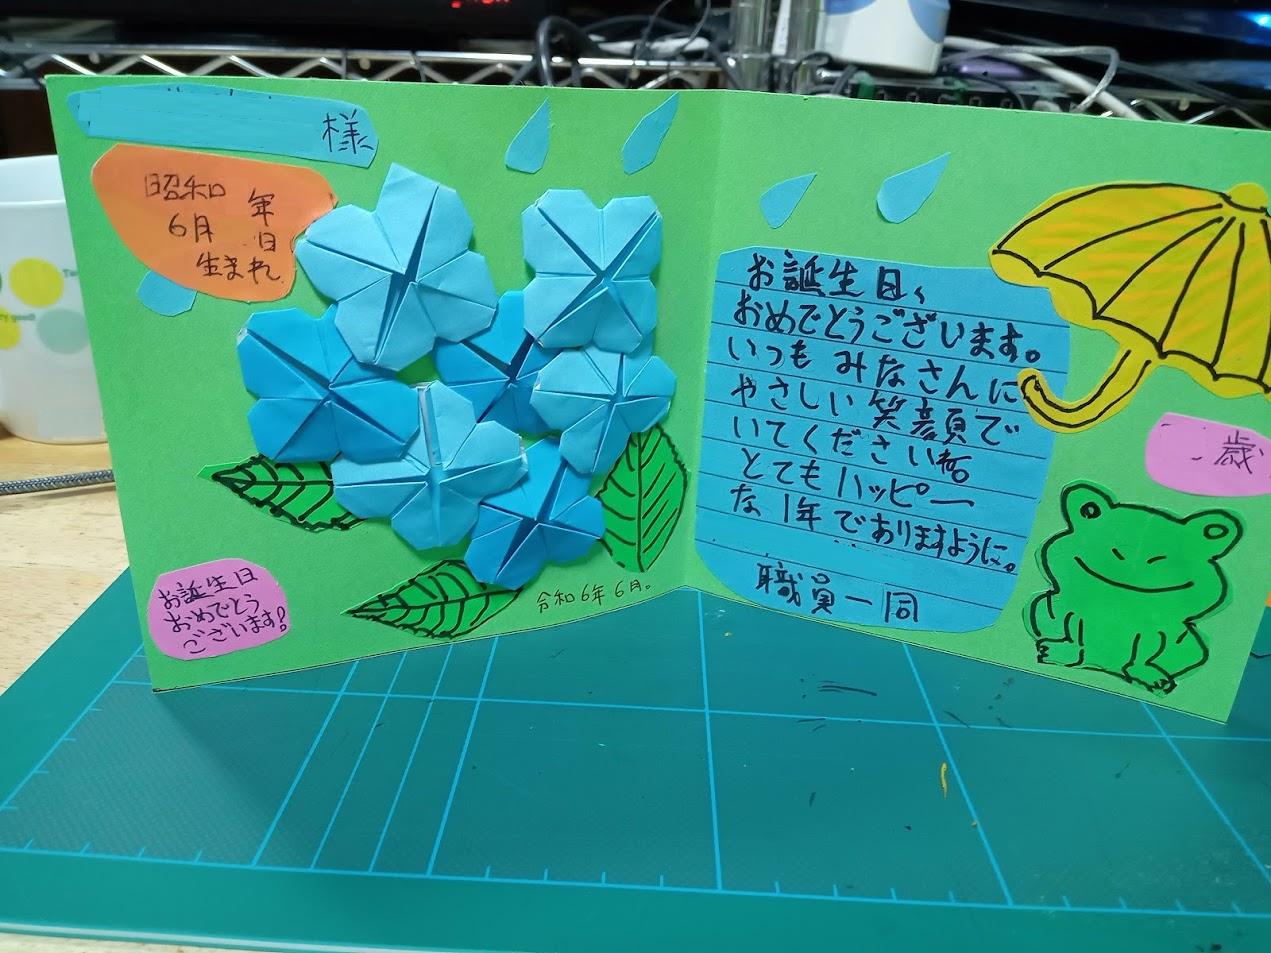 様
昭和 年
6月 日
生まれ
お誕生日
おめでとう
ございます!
令和6年6月。
お誕生日、
おめでとうございます。
いつもみなさんに
やさしい笑顔で
いてくださいね。
とてもハッピー
な1年でありますように。
職員一同
歳